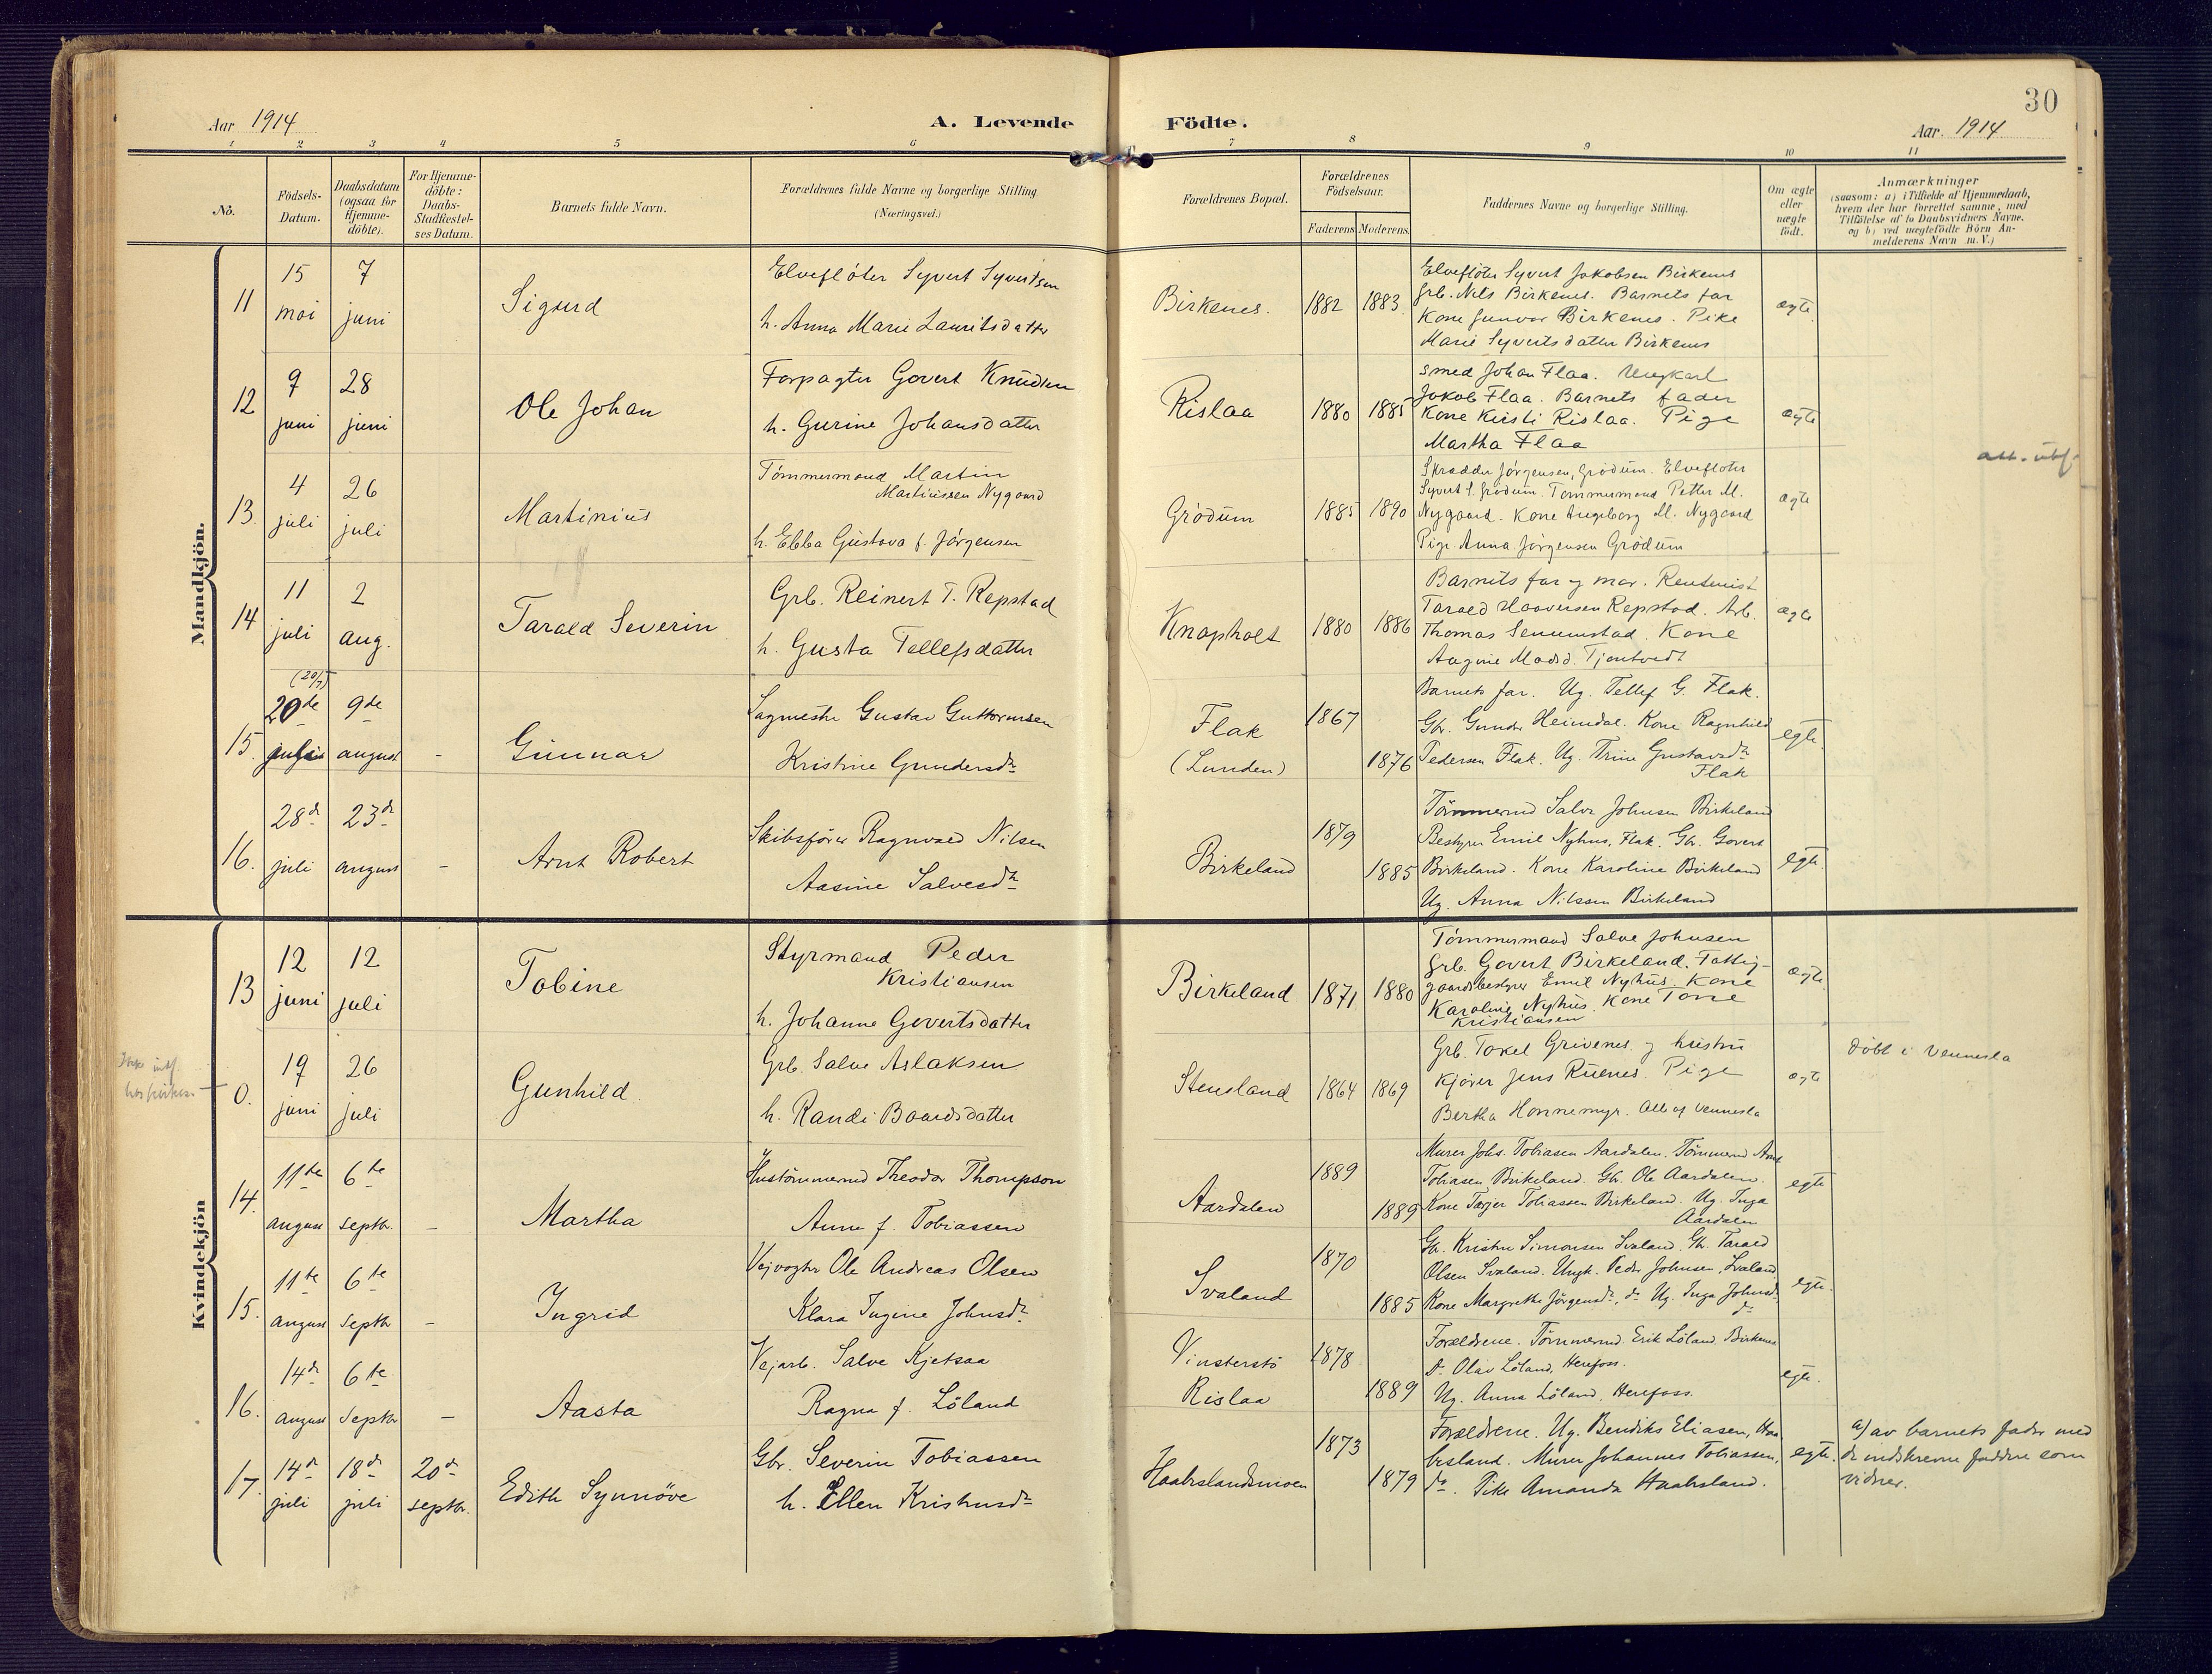 30
Aar 1914
A. Levende
Födte.
Aar. 1914
1 2 3 4 5 6 7 8 9 10 11
No.
Födsels-
Datum.
Daabsdatum
(ogsaa for
Hjemme-
döbte).
For Hjemme-
döbte:
Daabs-
Stadfæstel-
ses Datum.
Barnets fulde Navn.
Forældrenes fulde Navne og borgerlige Stilling
(Næringsvei.)
Forældrenes Bopæl.
Forældrenes
Födselsaar.
Faderens Moderens.
Faddernes Navne og borgerlige Stilling.
Om ægte
eller
uægte
födt.
Anmærkninger
(saasom: a) i Tilfælde af Hjemmedaab,
hvem der har forrettet samme, med
Tilföielse af to Daabsvidners Navne.
og b) ved uægtefödte Börn An-
melderens Navn m. V.)
Mandkjön.
11
15
mai
7
juni
Sigurd
Elvefløter Syvert Syvertsen
h. Anna Marie Lauritsdatter
Birkenes.
1882 1883
Elvefløter Syvert Jakobsen Birkenes
Grb. Nils Birkenes. Barnets far
Kone Gunvor Birkenes. Pike
Marie Syvertsdatter Birkenes
ægte
12
9
juni
28
juni
Ole Johan
Forpagter Govert Knudsen
h. Gurine Johansdatter
Rislaa
1880 1885
Smed Johan Flaa. Ungkarl
Jokob Flaa. Barnets fader
Kone Kirsti Rislaa. Pige
Martha Flaa
ægte
13.
4
juli
26
juli
Martinius
Tømmermand Martin
Martiniussen Nygaard
h. Ebba Gustava f. Jørgensen
Grødum
1885 1890
Skrædder Jørgensen, Grødum. Elvefløter
Syvert S. Grødum. Tømmermand Petter M.
Nygaard. Kone Ingeborg M. Nygaard
Pige Anna Jørgensen Grødum
ægte
att. utf.
14
11
juli
2
aug.
Tarald Severin
Grb. Reinert T. Repstad
h. Gusta Tellefsdatter
Knapholt
1880 1886
Barnets far og mor. Rentenist
Tarald Haaversen Repstad. Arb.
Thomas Senumstad. Kone
Aagine Madsd. Tjentvedt
ægte
15.
(20/7)
20de
juli
9de
august
-
Gunnar
Sagmester Gustav Guttormsen
Kristine Gundersdr
Flak
(Lunden)
1867
1876
Barnets far. Ug. Tellef G. Flak.
Gbr. Gunder Heimdal. Kone Ragnhild
Pedersen Flak. Ug. Trine Gustavsdr
Flak
egte.
16.
28de
juli
23de
august
-
Arnt Robert
Skibsfører Ragnvald Nilsen
Aasine Salvesdr
Birkeland
1879
1885
Tømmermd Salve Johnsen Birkeland
Bestyrer Emil Nyhus, Flak. Gbr. Govert
Birkeland. Kone Karoline Birkeland
Ug. Anna Nilssen Birkeland
egte.
Kvindekjön
13
12
juni
12
juli
Tobine
Styrmand Peder
Kristiansen
h. Johanne Govertsdatter
Birkeland
1871 1880
Tømmermand Salve Johnsen
Grb. Govert Birkeland. Fattig-
gaardsbestyrer Emil Nyhus. Kone
Karoline Nyhus. Kone Tone
Kristiansen
ægte.
0.
19
juni
26
juli
Gunhild
Grb. Salve Aslaksen
h. Randi Baardsdatter
Stensland
1864 1869
Grb. Takel Grivenes og hustru
Kjører Jens Ruenes. Pige
Bertha Honnemyr. Alle af Vennesla
ægte
Døbt i Vennesla
14.
11te
august
6te
septbr.
-
Martha
Hustømmermd Theodor Thompson
Anne f. Tobiassen
Aardalen
1889
1889
Murer Johs. Tobiasen Aardalen. Tømmermd Arnt
Tobiasen Birkeland. Gbr. Ole Aardalen.
Kone Torjer Tobiassen Birkeland. Ug. Inga
Aardalen
egte
15.
11te
august
6te
septbr
-
Ingrid
Vejvogter Ole Andreas Olsen
Klara Ingine Johnsdr
Svaland
1870
1885
Gbr. Kristen Simonsen Svaland. Gbr. Tarald
Olsen Svaland. Ungk. Peder Johnsen, Svaland
Kone Margrethe Jørgensdr, do Ug. Inga Johnsdr.
do
egte.
16.
14de
august
6te
septbr
-
Aasta
Vejarb. Salve Kjetsaa
Ragna f. Löland
Vinsterstö
Rislaa
1878
1889
Forældrene. Tømmermd. Erik Löland Birkenes
Do Olav Löland, Herefoss.
Ug. Anna Löland. Herefoss.
egte.
17.
14de
juli
18de
juli
20de
septbr.
Edith Synnöve
Gbr. Severin Tobiassen
h. Ellen Kristensdr
Haabeslandsmoen
1873
1879
Forældrene. Ug. Bendiks Eliasen, Haa
besland. Murer Johannes Tobiassen,
do. Pike Amanda Haabesland.
egte.
a) av barnets fader med
de indskrevne faddere som
vidner.